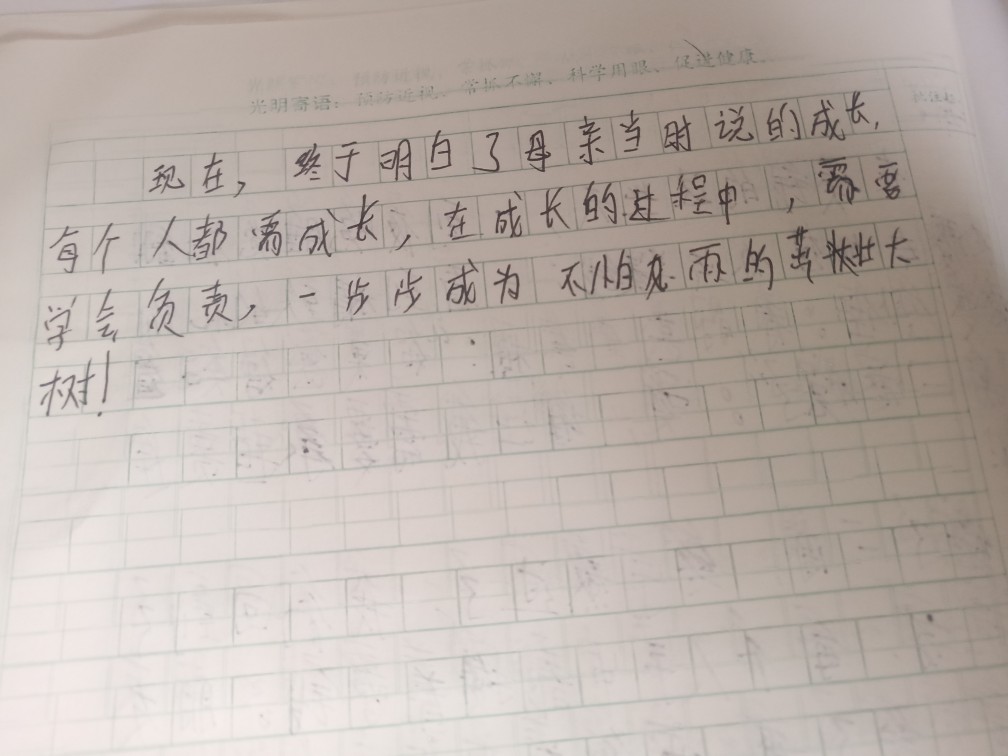 光明寄语：预防近视、常抓不懈、科学用眼、促进健康.
现在，终于明白了母亲当时说的成长，
每个人都需成长，在成长的过程中，需要
学会负责，一步步成为不怕风雨的茁壮大
树！